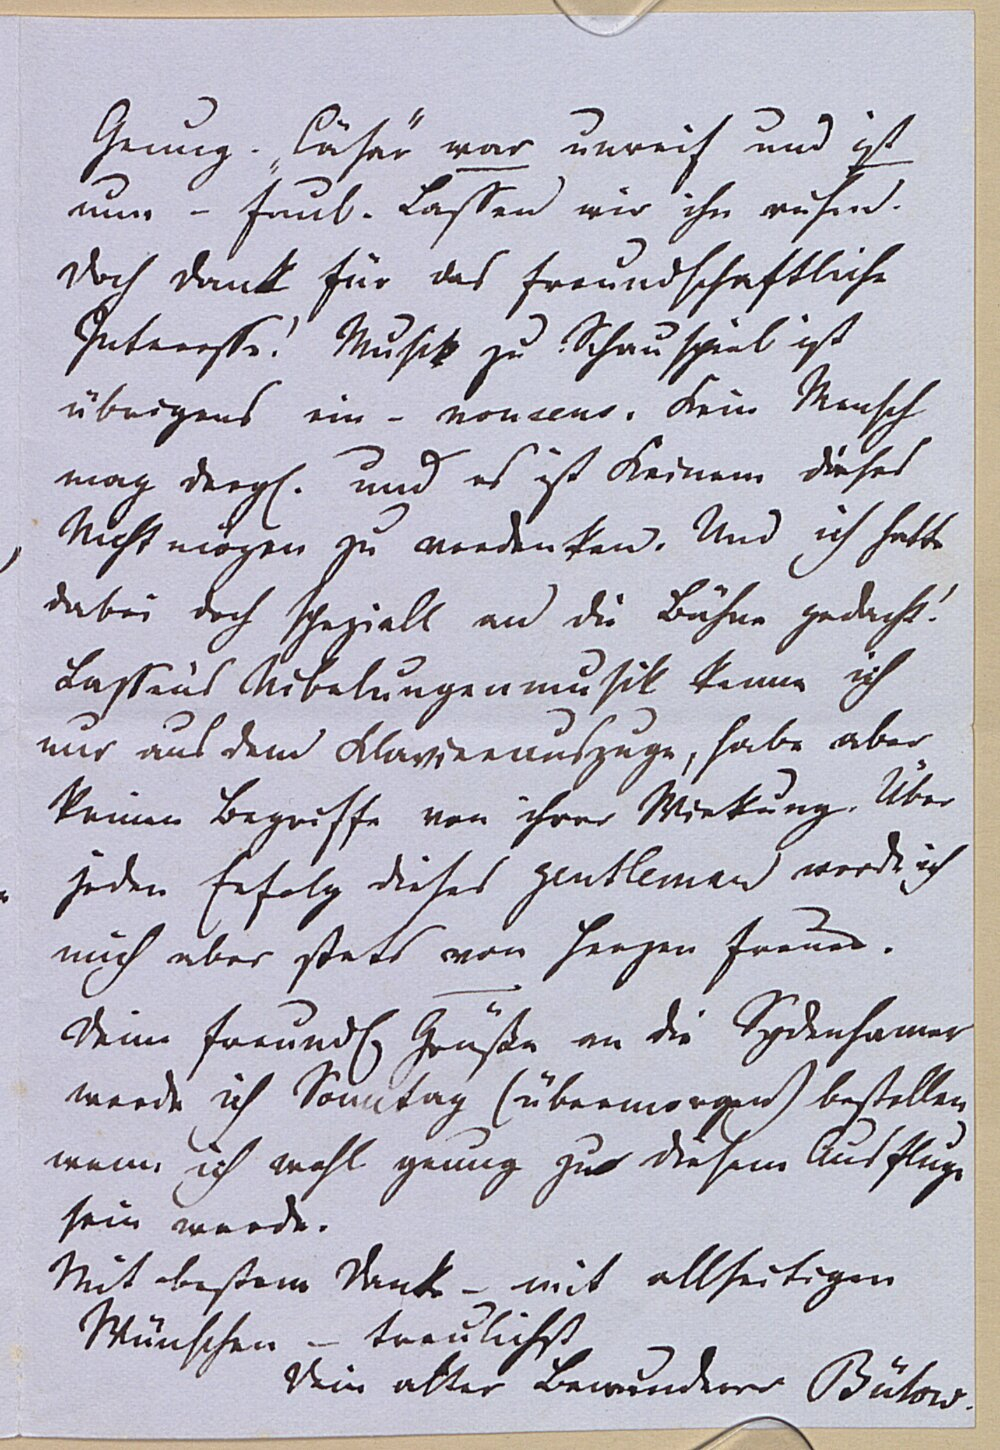 Genug. „Cäsar“ war unreif und ist
nun – faul. Lassen wir ihn ruhen.
Doch Dank für das freundschaftliche
Interesse! Musik zu Schauspiel ist
übrigens ein – nonsens. Kein Mensch
mag dergl. und es ist Keinem dieses
Nichtmögen zu verdenken. Und ich hatte
dabei doch speziell an die Bühne gedacht!
Lassen's Nibelungenmusik kenne ich
nur aus dem Klavierauszuge, habe aber
keinen Begriff von ihrer Wirkung. Über
jeden Erfolg dieses gentleman werde ich
mich aber stets von Herzen freuen.
Deine freundl. Grüße an die Sydenhamer
werde ich Sonntag (übermorgen) bestellen
wenn ich wohl genug zu diesem Ausfluge
sein werde.
Mit bestem Dank – mit allseitigen
Wünschen – treulichst
Dein alter Bewunderer Bülow.